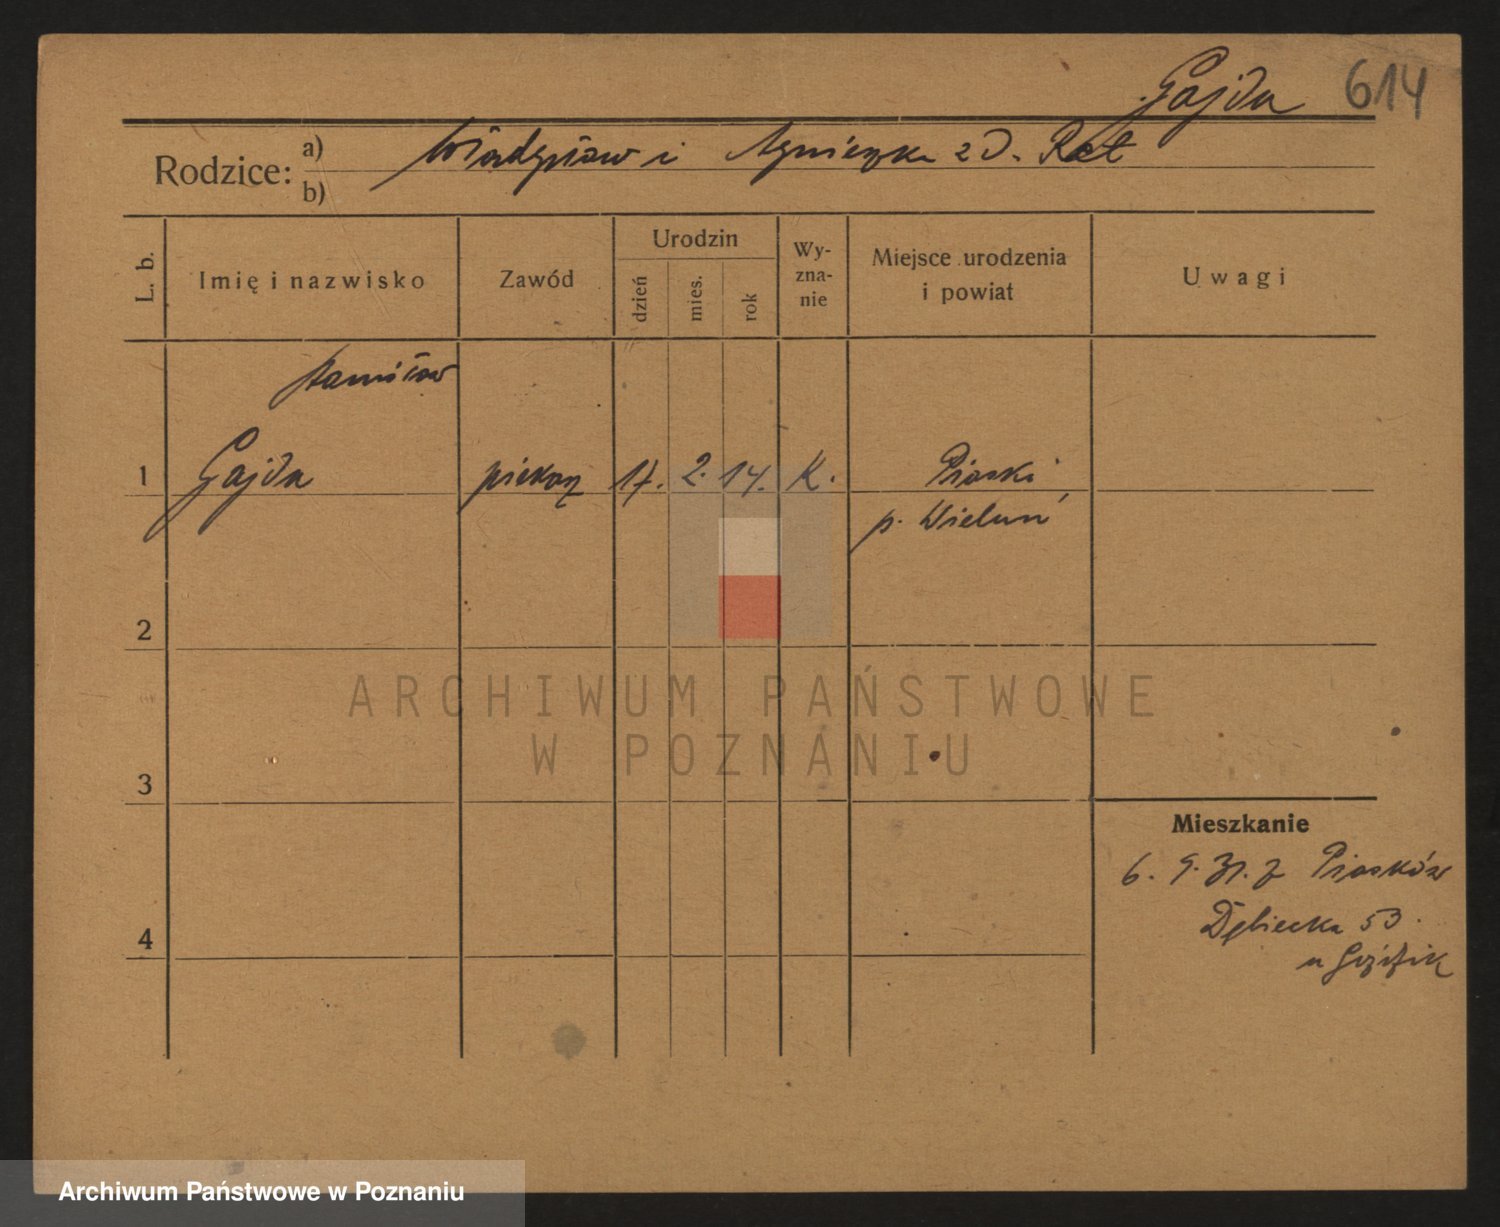 Gajda 614
Rodzice: a) Władysław i Agnieszka z D. Ret
b)
L. b.
Imię i nazwisko
Zawód
Urodzin
dzień
mies.
rok
Wy-
zna-
nie
Miejsce urodzenia
i powiat
Uwagi
Stanisław
1 Gajda piekarz 17. 2. 14. K. Piaski
p. Wieluń
2
ARCHIWUM PAŃSTWOWE
W POZNANIU
3
Mieszkanie
6. 9. 31. z Piasków
Dębiecka 53.
4
u
Archiwum Państwowe w Poznaniu